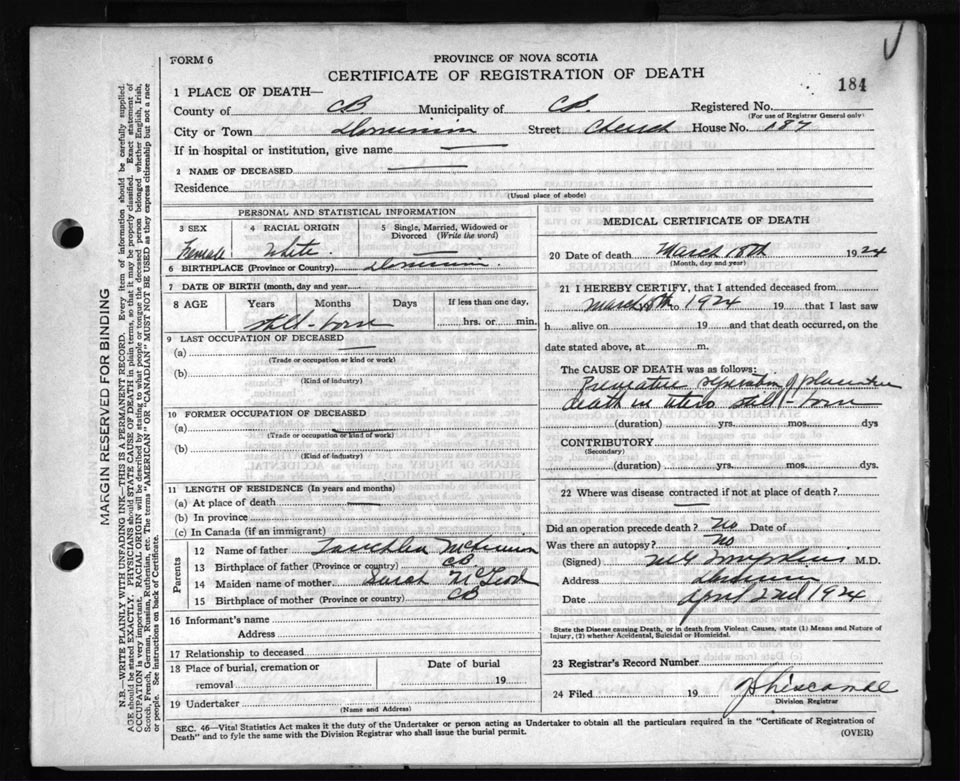 FORM 6
PROVINCE OF NOVA SCOTIA
CERTIFICATE OF REGISTRATION OF DEATH
184
1 PLACE OF DEATH—
County of CB Municipality of CB. Registered No.
(For use of Registrar General only)
City or Town Dominion Street Church House No. 187
If in hospital or institution, give name
2 NAME OF DECEASED
Residence
(Usual place of abode)
PERSONAL AND STATISTICAL INFORMATION
3 SEX 4 RACIAL ORIGIN 5 Single, Married, Widowed or Divorced (Write the word)
Female White.
6 BIRTHPLACE (Province or Country) Dominion.
7 DATE OF BIRTH (month, day and year)
8 AGE Years Months Days If less than one day,
still-born hrs. or min.
9 LAST OCCUPATION OF DECEASED
(a)
(Trade or occupation or kind or work)
(b)
(Kind of industry)
10 FORMER OCCUPATION OF DECEASED
(a)
(Trade or occupation or kind of work)
(b)
(Kind of industry)
11 LENGTH OF RESIDENCE (In years and months)
(a) At place of death
(b) In province
(c) In Canada (if an immigrant)
Parents
12 Name of father Lauchlin McKinnon
13 Birthplace of father (Province or country) CB
14 Maiden name of mother Sarah McLeod
15 Birthplace of mother (Province or country) CB
16 Informant's name
Address
17 Relationship to deceased
18 Place of burial, cremation or removal Date of burial
19
19 Undertaker
(Name and Address)
MEDICAL CERTIFICATE OF DEATH
20 Date of death March 18th 1924
(Month, day and year)
21 I HEREBY CERTIFY, that I attended deceased from
March 18th to 1924 19 that I last saw
h alive on 19 and that death occurred, on the
date stated above, at m.
The CAUSE OF DEATH was as follows:
Premature separation of placenta
death in utero still-born
(duration) yrs. mos. dys
CONTRIBUTORY
(Secondary)
(duration) yrs. mos. dys.
22 Where was disease contracted if not at place of death?
Did an operation precede death? No Date of
Was there an autopsy? No
(Signed) M.D.
Address Dominion
Date April 22nd 1924
State the Disease causing Death, or in death from Violent Causes, state (1) Means and Nature of
Injury, (2) whether Accidental, Suicidal or Homicidal.
23 Registrar's Record Number
24 Filed 19
Division Registrar
SEC. 46—Vital Statistics Act makes it the duty of the Undertaker or person acting as Undertaker to obtain all the particulars required in the "Certificate of Registration of
Death" and to fyle the same with the Division Registrar who shall issue the burial permit.
(OVER)
MARGIN RESERVED FOR BINDING
N.B.—WRITE PLAINLY WITH UNFADING INK—THIS IS A PERMANENT RECORD. Every item of information should be carefully supplied.
AGE should be stated EXACTLY. PHYSICIANS should STATE CAUSE OF DEATH in plain terms, so that it may be properly classified. Exact statement of
OCCUPATION is very important. RACIAL ORIGIN will be described by stating to what people or tongue the deceased person belonged whether English, Irish,
Scotch, French, German, Russian, Ruthenian, etc. The terms "AMERICAN" OR "CANADIAN" MUST NOT BE USED as they express citizenship but not a race
or people. See instructions on back of Certificate.